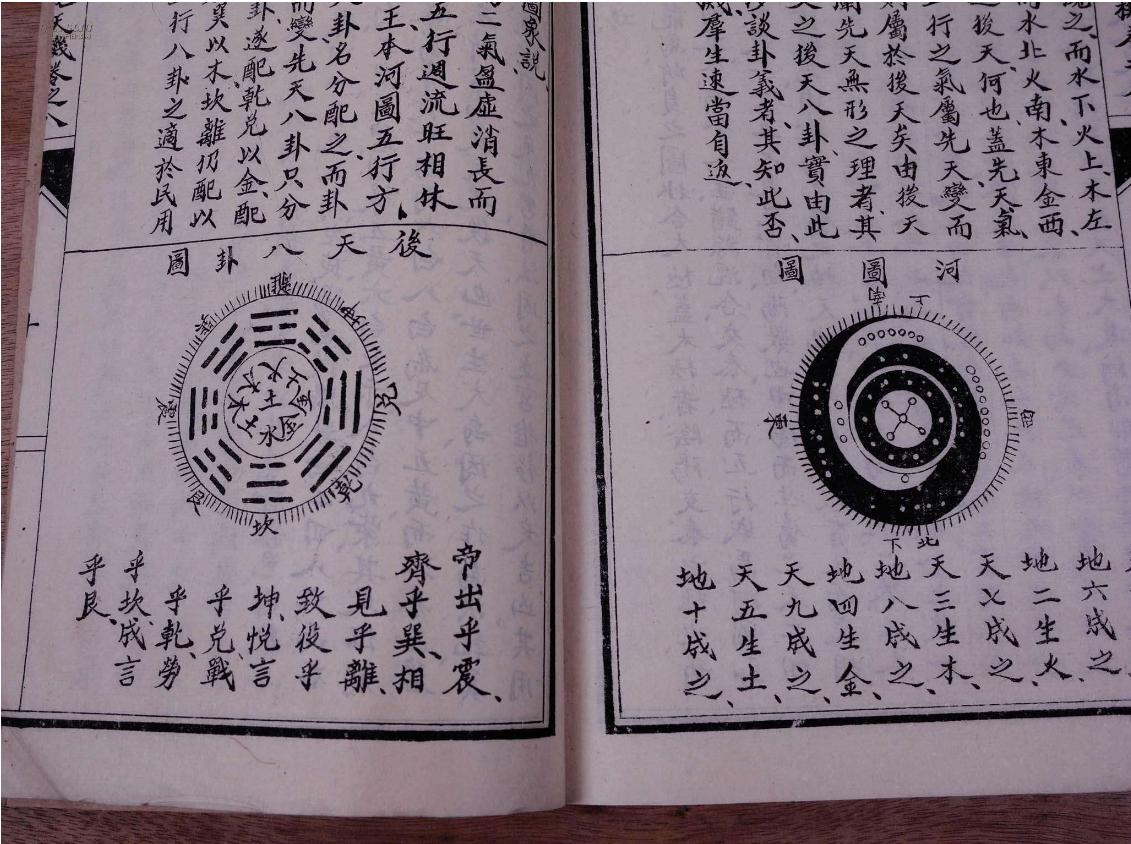 之、而水下火上、木左
而水北火南、木東金西、
之後天何也蓋先天氣、
行之氣屬先天變而
屬於後天矣由後天
先天無形之理者其
之後天八卦實由此
談卦義者其知此否、
羣生速當自返、
河圖圖
上
南
西
東
北
下
地六成之、
地二生火、
天七成之、
天三生木、
地八成之、
地四生金、
天九成之、
天五生土、
地十成之、
圖象說、
二氣盈虛消長而
五行週流旺相休
王本河圖五行方
卦名分配之而卦
而變先天八卦只分
卦、遂配乾兌以金、配
巽以木坎離仍配以
行八卦之適於民用
後天八卦圖
離
坤
兌
乾
坎
艮
震
巽
火
土
金
金
水
木
木
帝出乎震、
齊乎巽、相
見乎離、
致役乎
坤、悅言
乎兌、戰
乎乾、勞
乎坎、成言
乎艮、